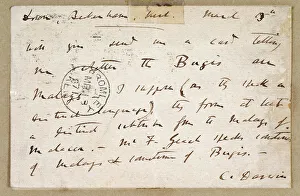 Down, Beckenham, Kent. March 3rd
Will you send me a card telling
me whether the Bugis are
Malays. I suppose (as they speak a
distinct language) they form at least
a distinct              from the Malays of
Malacca. — Mr F. Geach         
of Malays &              of Bugis.
C. Darwin
BROMLEY
KENT